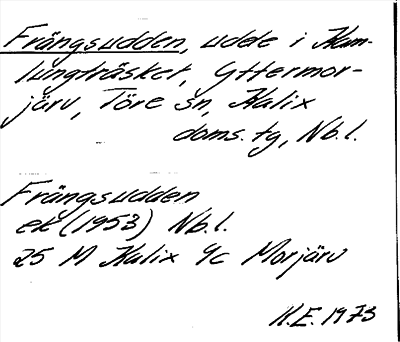 Frängsudden, udde i Kam-
lungträsket, Yttermor-
järv, Töre sn, Kalix
doms.tg, Nb.l.
Frängsudden
ek (1953) Nb.l.
25 M Kalix 9c Morjärv
H.E. 1973